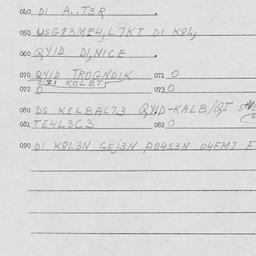 040 DI A..T3R
050 USG83ME4,L7KT DI K81,
060 QYID DI,NICE
070 QYID TROGNDIK 071 0
KOLBT
072 0 073 0
080 DS KELBAL73 QYID-KALB/QT
081 TE4L3C3 082 0
090 DI K81.3N GEJ3N D04S3N 04FM7 F